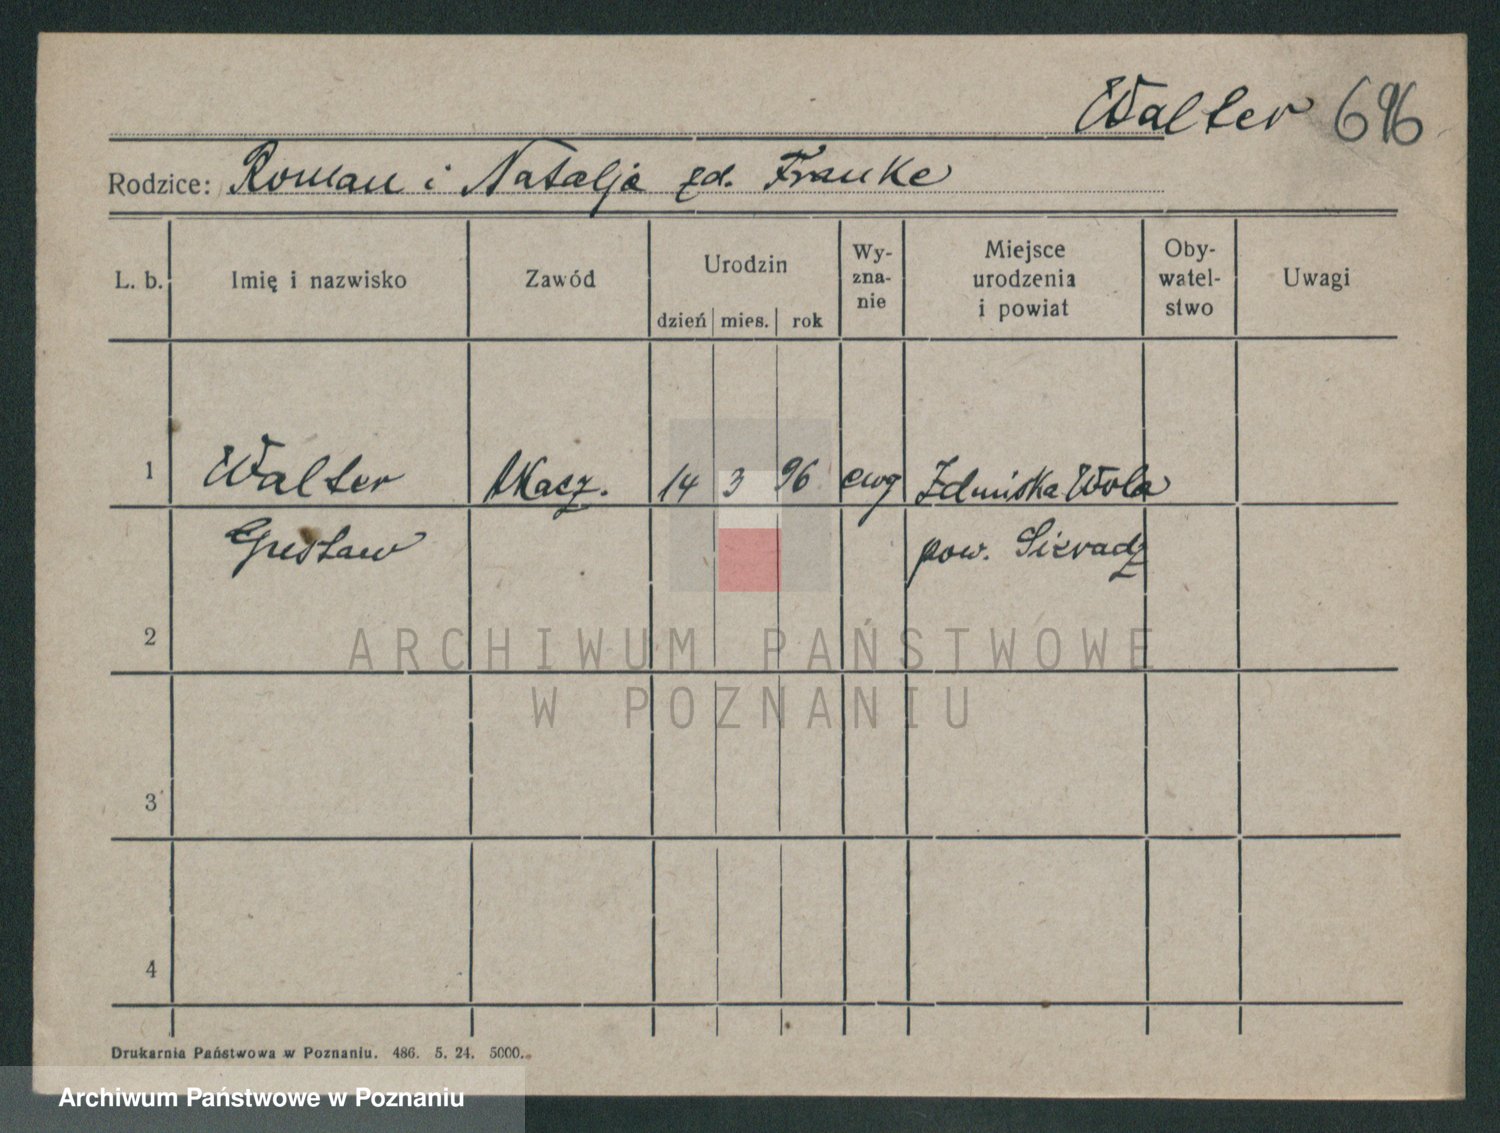 Walter 696
Rodzice: Roman i Natalja zd. Franke
L. b. Imię i nazwisko Zawód Urodzin dzień mies. rok Wy-zna-nie Miejsce urodzenia i powiat Oby-watel-stwo Uwagi
1 Walter tkacz. 14 3 96 ewg Zduńska Wola
Gustaw pow. Sieradz
2
ARCHIWUM PAŃSTWOWE
W POZNANIU
3
4
Drukarnia Państwowa w Poznaniu. 486. 5. 24. 5000.
Archiwum Państwowe w Poznaniu